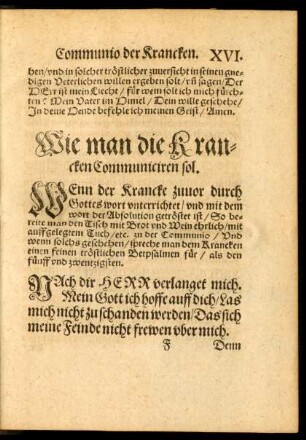 Communio der Krancken. XVI.
hen/vnd in solcher tröstlicher zuuersicht in seinen gne-
digen Veterlichen willen ergeben solt/vñ sagen/Der
HErr ist mein Liecht/ für wem solt ich mich fürch-
ten? Mein Vater im Himel/ Dein wille geschehe/
In deine Hende befehle ich meinen Geist/ Amen.
Wie man die Kran-
cken Communiciren sol.
WEnn der Krancke zuuor durch
Gottes wort vnterrichtet/ vnd mit dem
wort der Absolution getröstet ist/ So be-
reite man den Tisch mit Brot vnd Wein ehrlich/mit
auffgelegtem Tuch/etc. zu der Communio/ Vnd
wenn solchs geschehen/ spreche man dem Krancken
einen feinen tröstlichen Betpsalmen für/ als den
fünff vnd zwentzigsten.
NAch dir HERR verlanget mich.
Mein Gott ich hoffe auff dich/Las
mich nicht zu schanden werden/Das sich
meine Feinde nicht frewen vber mich.
F Denn